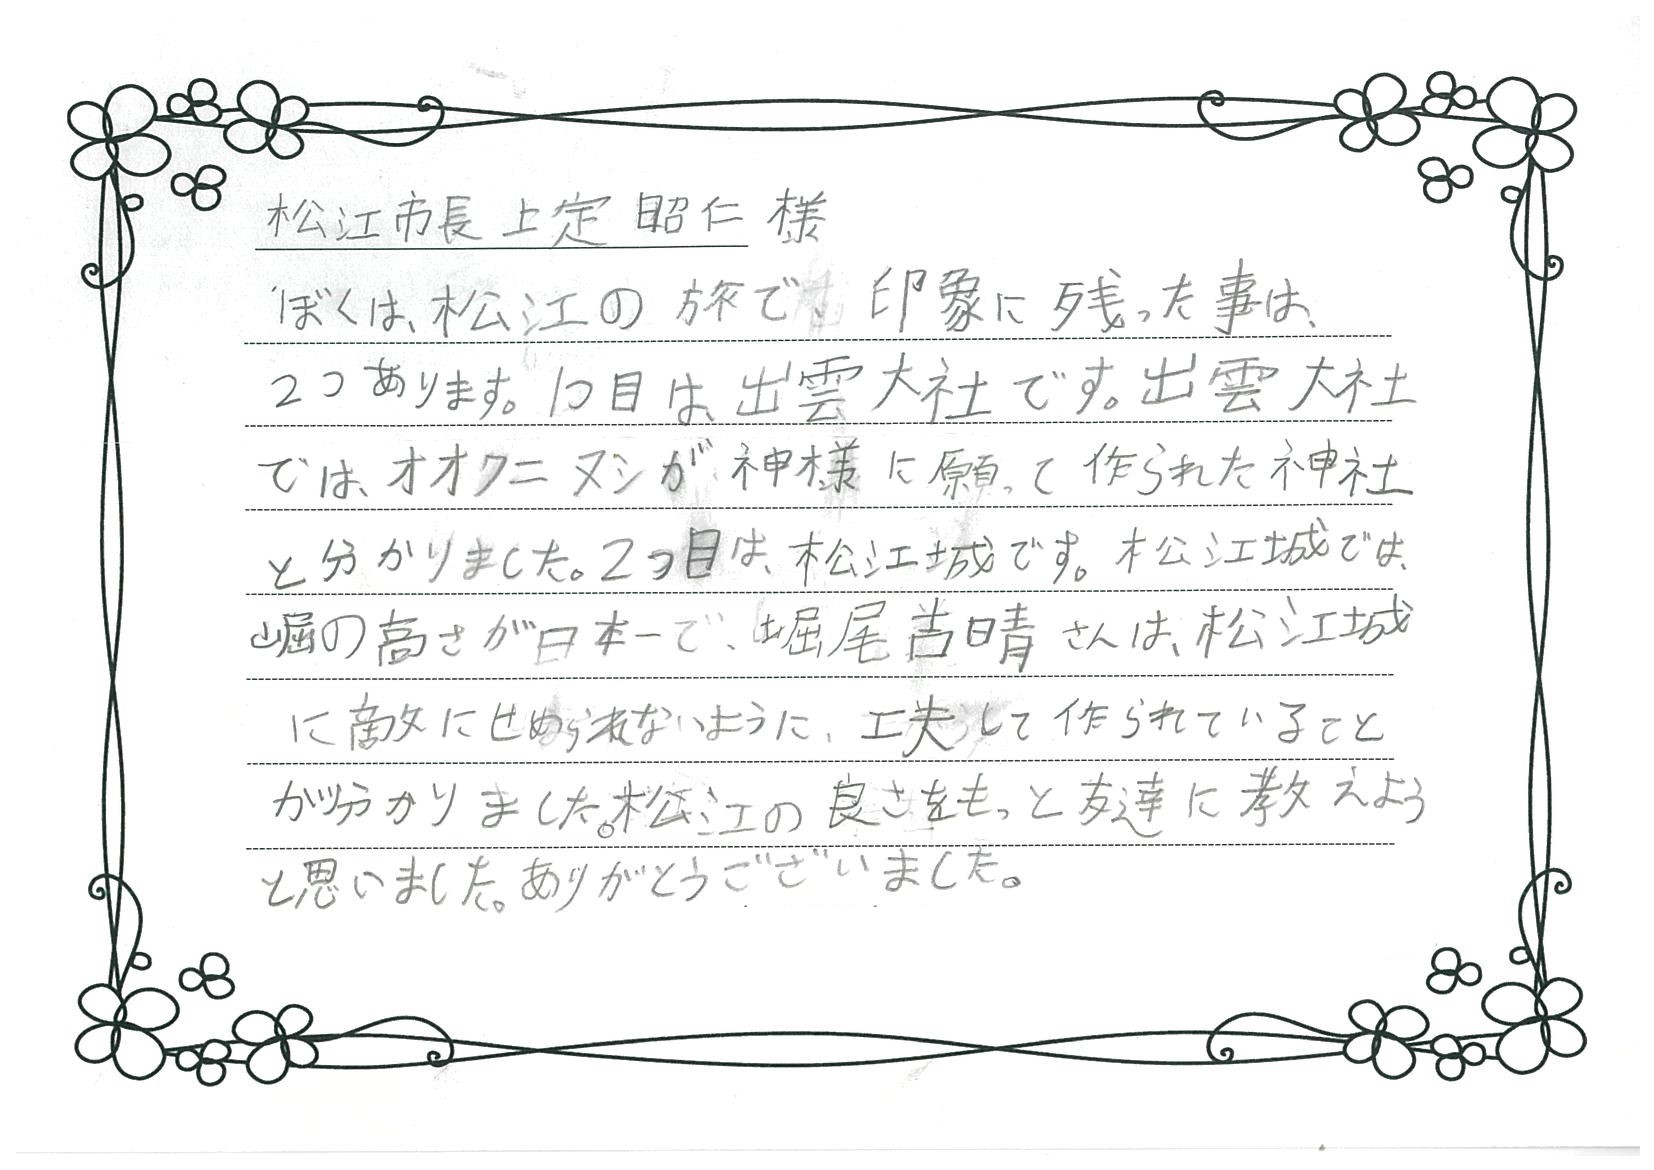 松江市長 上定 昭仁 様
ぼくは、松江の旅で、印象に残った事は、
2つあります。1つ目は、出雲大社です。出雲大社
では、オオクニヌシが神様に願って作られた神社
と分かりました。2つ目は、松江城です。松江城では、
堀の高さが日本一で、堀尾吉晴さんは、松江城
に敵にせめられないように、工夫して作られていること
が分かりました。松江の良さをもっと友達に教えよう
と思いました。ありがとうございました。